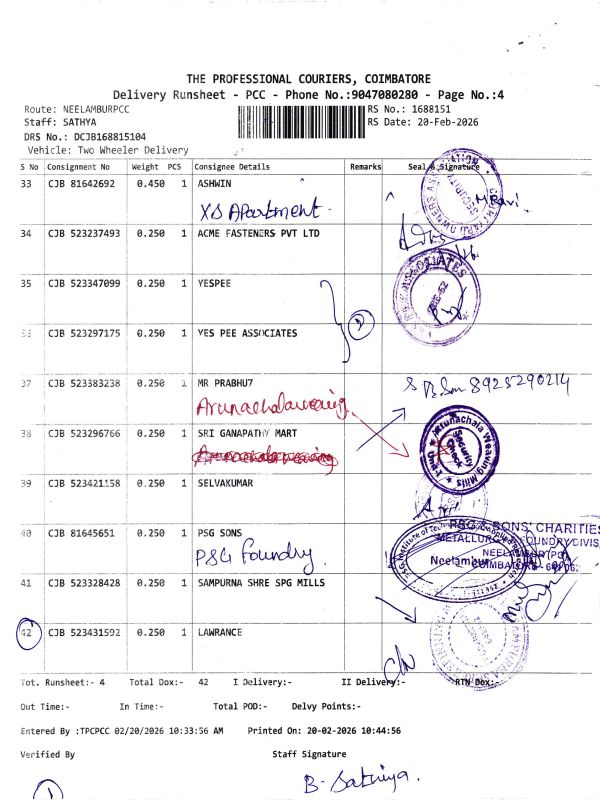 THE PROFESSIONAL COURIERS, COIMBATORE
Delivery Runsheet - PCC - Phone No.:9047080280 - Page No.:4
Route: NEELAMBURPCC RS No.: 1688151
Staff: SATHYA RS Date: 20-Feb-2026
DRS No.: DCJB168815104
Vehicle: Two Wheeler Delivery
S No Consignment No Weight PCS Consignee Details Remarks Seal & Signature
33 CJB 81642692 0.450 1 ASHWIN
XS Apartment
34 CJB 523237493 0.250 1 ACME FASTENERS PVT LTD
35 CJB 523347099 0.250 1 YESPEE
2
36 CJB 523297175 0.250 1 YES PEE ASSOCIATES
37 CJB 523383238 0.250 1 MR PRABHU7
8925290214
Arunachalaweaving
38 CJB 523296766 0.250 1 SRI GANAPATHY MART
Arunachala Weaving Mills
Security Check
39 CJB 523421158 0.250 1 SELVAKUMAR
40 CJB 81645651 0.250 1 PSG SONS
PSG Foundry
PSG & SONS' CHARITIES
METALLURGY FOUNDRY DIVIS
NEELAMBUR (PO)
Neelambur
41 CJB 523328428 0.250 1 SAMPURNA SHRE SPG MILLS
42 CJB 523431592 0.250 1 LAWRANCE
Tot. Runsheet:- 4 Total Dox:- 42 I Delivery:- II Delivery:- RTN Dox:-
Out Time:- In Time:- Total POD:- Delvy Points:-
Entered By :TPCPCC 02/20/2026 10:33:56 AM Printed On: 20-02-2026 10:44:56
Verified By Staff Signature
B. Sathiya.